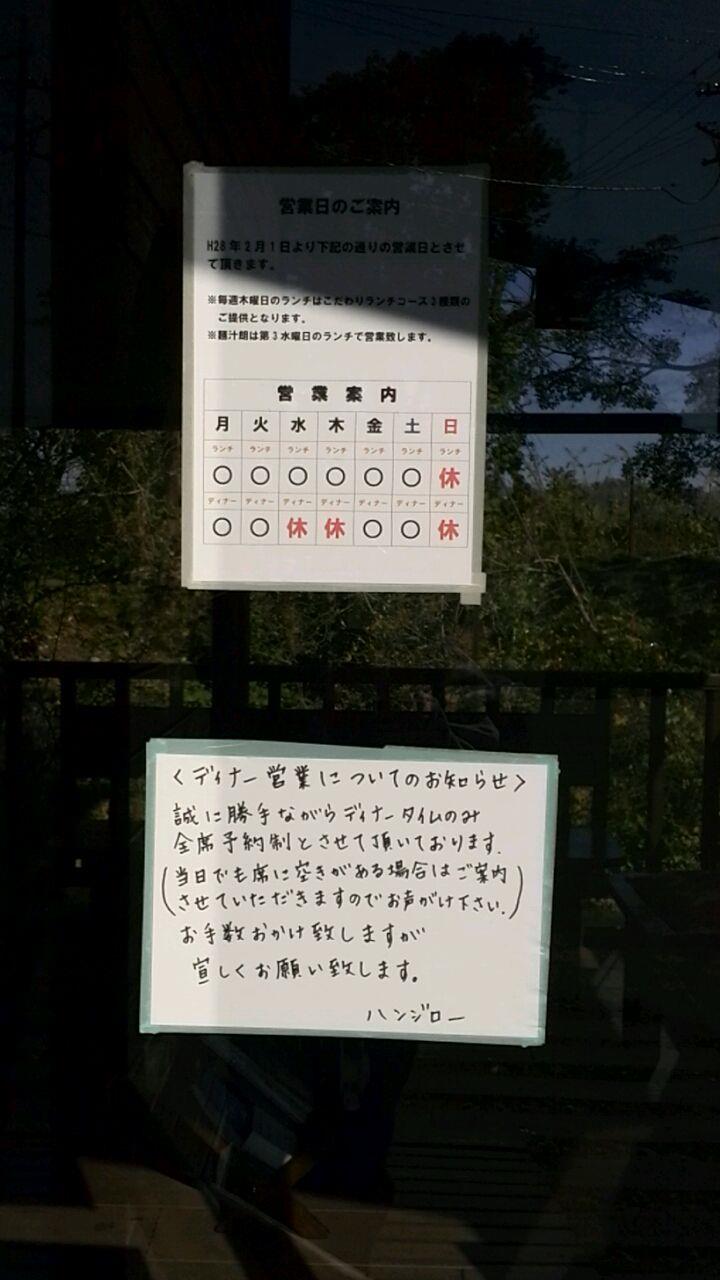 営業日のご案内
H28年2月1日より下記の通りの営業日とさせ
て頂きます。
※毎週木曜日のランチはこだわりランチコース3種類の
ご提供となります。
※麺汁朗は第3水曜日のランチで営業致します。
営業案内
月 火 水 木 金 土 日
ランチ ランチ ランチ ランチ ランチ ランチ ランチ
〇 〇 〇 〇 〇 〇 休
ディナー ディナー ディナー ディナー ディナー ディナー ディナー
〇 〇 休 休 〇 〇 休
<ディナー営業についてのお知らせ>
誠に勝手ながらディナータイムのみ
全席予約制とさせて頂いております.
(当日でも席に空きがある場合はご案内
させていただきますのでお声がけ下さい.)
お手数おかけ致しますが
宜しくお願い致します。
ハンジロー